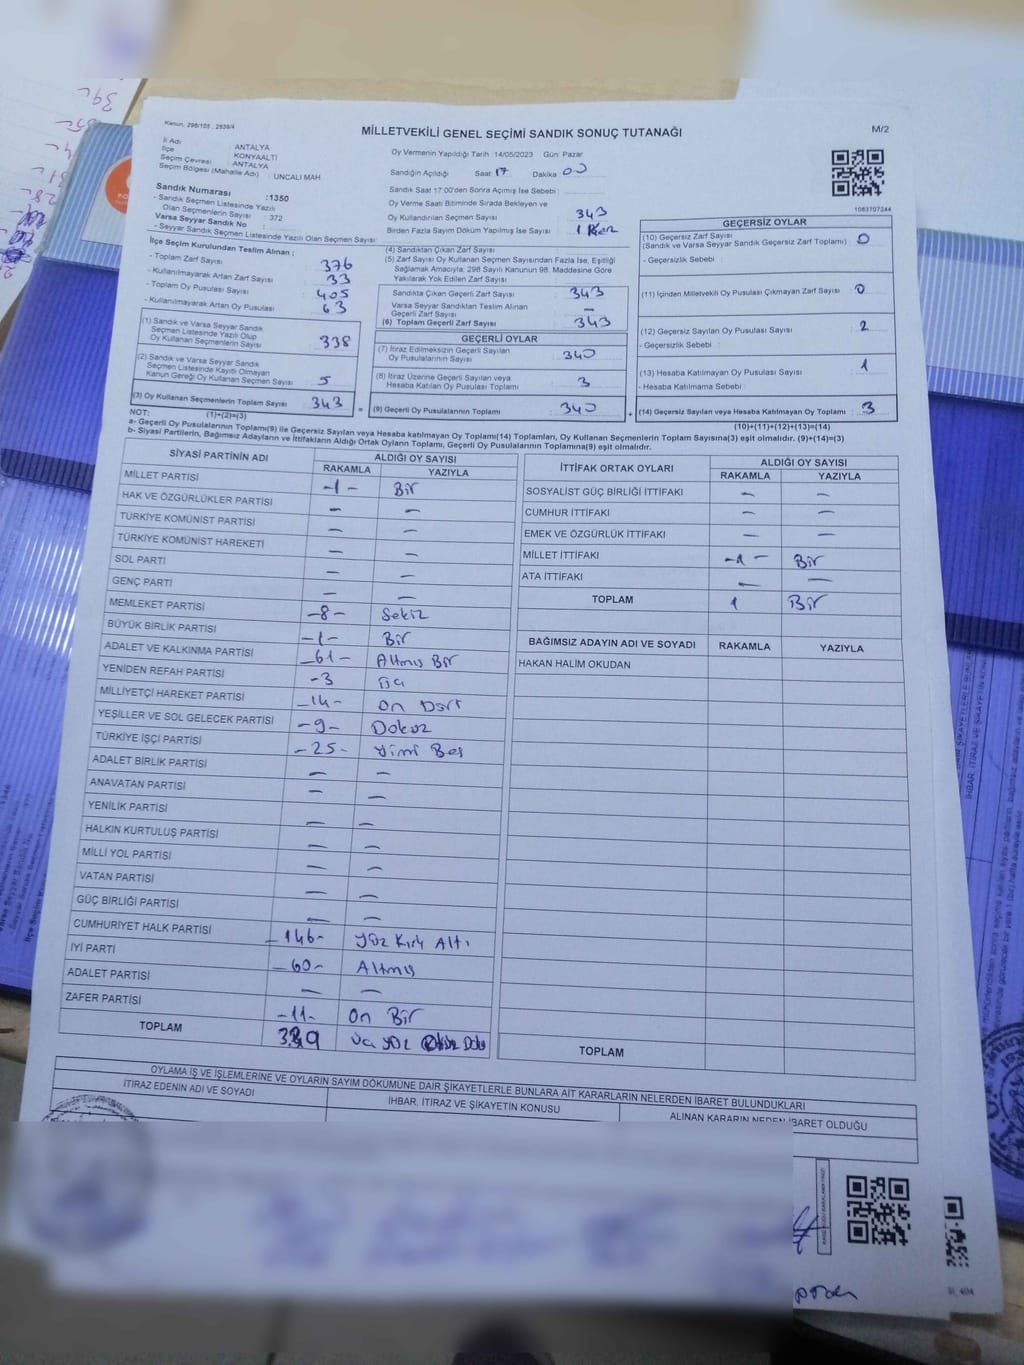 Kanun, 298/105 , 2839/4
MİLLETVEKİLİ GENEL SEÇİMİ SANDIK SONUÇ TUTANAĞI
M/2
İl Adı : ANTALYA
İlçe : KONYAALTI
Seçim Çevresi : ANTALYA
Seçim Bölgesi (Mahalle Adı) : UNCALI MAH
Sandık Numarası :1350
- Sandık Seçmen Listesinde Yazılı
Olan Seçmenlerin Sayısı : 372
Varsa Seyyar Sandık No :
- Seyyar Sandık Seçmen Listesinde Yazılı Olan Seçmen Sayısı:
İlçe Seçim Kurulundan Teslim Alınan ;
- Toplam Zarf Sayısı 376
- Kullanılmayarak Artan Zarf Sayısı 33
- Toplam Oy Pusulası Sayısı 405
- Kullanılmayarak Artan Oy Pusulası 63
(1) Sandık ve Varsa Seyyar Sandık
Seçmen Listesinde Yazılı Olup
Oy Kullanan Seçmenlerin Sayısı 338
(2) Sandık ve Varsa Seyyar Sandık
Seçmen Listesinde Kayıtlı Olmayan
Kanun Gereği Oy Kullanan Seçmen Sayısı 5
(3) Oy Kullanan Seçmenlerin Toplam Sayısı 343
(1)+(2)=(3)
Oy Vermenin Yapıldığı Tarih :14/05/2023 Gün: Pazar
Sandığın Açıldığı Saat 17 Dakika 00
Sandık Saat 17:00'den Sonra Açılmış İse Sebebi :
Oy Verme Saati Bitiminde Sırada Bekleyen ve
Oy Kullandırılan Seçmen Sayısı 343
Birden Fazla Sayım Döküm Yapılmış İse Sayısı 1 Kez
(4) Sandıktan Çıkan Zarf Sayısı
(5) Zarf Sayısı Oy Kullanan Seçmen Sayısından Fazla İse, Eşitliği
Sağlamak Amacıyla, 298 Sayılı Kanunun 98. Maddesine Göre
Yakılarak Yok Edilen Zarf Sayısı
Sandıkta Çıkan Geçerli Zarf Sayısı 343
Varsa Seyyar Sandıktan Teslim Alınan
Geçerli Zarf Sayısı —
(6) Toplam Geçerli Zarf Sayısı 343
GEÇERLİ OYLAR
(7) İtiraz Edilmeksizin Geçerli Sayılan
Oy Pusulalarının Sayısı 340
(8) İtiraz Üzerine Geçerli Sayılan veya
Hesaba Katılan Oy Pusulası Toplamı 3
= (9) Geçerli Oy Pusulalarının Toplamı 340 +
1083707244
GEÇERSİZ OYLAR
(10) Geçersiz Zarf Sayısı
(Sandık ve Varsa Seyyar Sandık Geçersiz Zarf Toplamı) : 0
- Geçersizlik Sebebi :
(11) İçinden Milletvekili Oy Pusulası Çıkmayan Zarf Sayısı : 0
(12) Geçersiz Sayılan Oy Pusulası Sayısı 2
- Geçersizlik Sebebi :
(13) Hesaba Katılmayan Oy Pusulası Sayısı 1
- Hesaba Katılmama Sebebi :
(14) Geçersiz Sayılan veya Hesaba Katılmayan Oy Toplamı : 3
(10)+(11)+(12)+(13)=(14)
NOT:
a- Geçerli Oy Pusulasının Toplamı(9) ile Geçersiz Sayılan veya Hesaba katılmayan Oy Toplam(14) Toplamları, Oy Kullanan Seçmenlerin Toplam Sayısına(3) eşit olmalıdır. (9)+(14)=(3)
b- Siyasi Partilerin, Bağımsız Adayların ve İttifakların Aldığı Ortak Oyların Toplamı, Geçerli Oy Pusulasının Toplamına(9) eşit olmalıdır.
SİYASİ PARTİNİN ADI ALDIĞI OY SAYISI
RAKAMLA YAZIYLA
MİLLET PARTİSİ -1- Bir
HAK VE ÖZGÜRLÜKLER PARTİSİ — —
TÜRKİYE KOMÜNİST PARTİSİ — —
TÜRKİYE KOMÜNİST HAREKETİ — —
SOL PARTİ — —
GENÇ PARTİ — —
MEMLEKET PARTİSİ -8- Sekiz
BÜYÜK BİRLİK PARTİSİ -1- Bir
ADALET VE KALKINMA PARTİSİ -61- Altmış Bir
YENİDEN REFAH PARTİSİ -3 Üç
MİLLİYETÇİ HAREKET PARTİSİ -14- On Dört
YEŞİLLER VE SOL GELECEK PARTİSİ -9- Dokuz
TÜRKİYE İŞÇİ PARTİSİ -25- Yirmi Beş
ADALET BİRLİK PARTİSİ — —
ANAVATAN PARTİSİ — —
YENİLİK PARTİSİ — —
HALKIN KURTULUŞ PARTİSİ — —
MİLLİ YOL PARTİSİ — —
VATAN PARTİSİ — —
GÜÇ BİRLİĞİ PARTİSİ — —
CUMHURİYET HALK PARTİSİ -146- Yüz Kırk Altı
İYİ PARTİ -60- Altmış
ADALET PARTİSİ — —
ZAFER PARTİSİ -11- On Bir
TOPLAM 339 Üç yüz
İTTİFAK ORTAK OYLARI ALDIĞI OY SAYISI
RAKAMLA YAZIYLA
SOSYALİST GÜÇ BİRLİĞİ İTTİFAKI — —
CUMHUR İTTİFAKI — —
EMEK VE ÖZGÜRLÜK İTTİFAKI — —
MİLLET İTTİFAKI -1- Bir
ATA İTTİFAKI — —
TOPLAM 1 Bir
BAĞIMSIZ ADAYIN ADI VE SOYADI RAKAMLA YAZIYLA
HAKAN HALİM OKUDAN
TOPLAM
OYLAMA İŞ VE İŞLEMLERİNE VE OYLARIN SAYIM DÖKÜMÜNE DAİR ŞİKAYETLERLE BUNLARA AİT KARARLARIN NELERDEN İBARET BULUNDUKLARI
İTİRAZ EDENİN ADI VE SOYADI İHBAR, İTİRAZ VE ŞİKAYETİN KONUSU ALINAN KARARIN NEDEN İBARET OLDUĞU